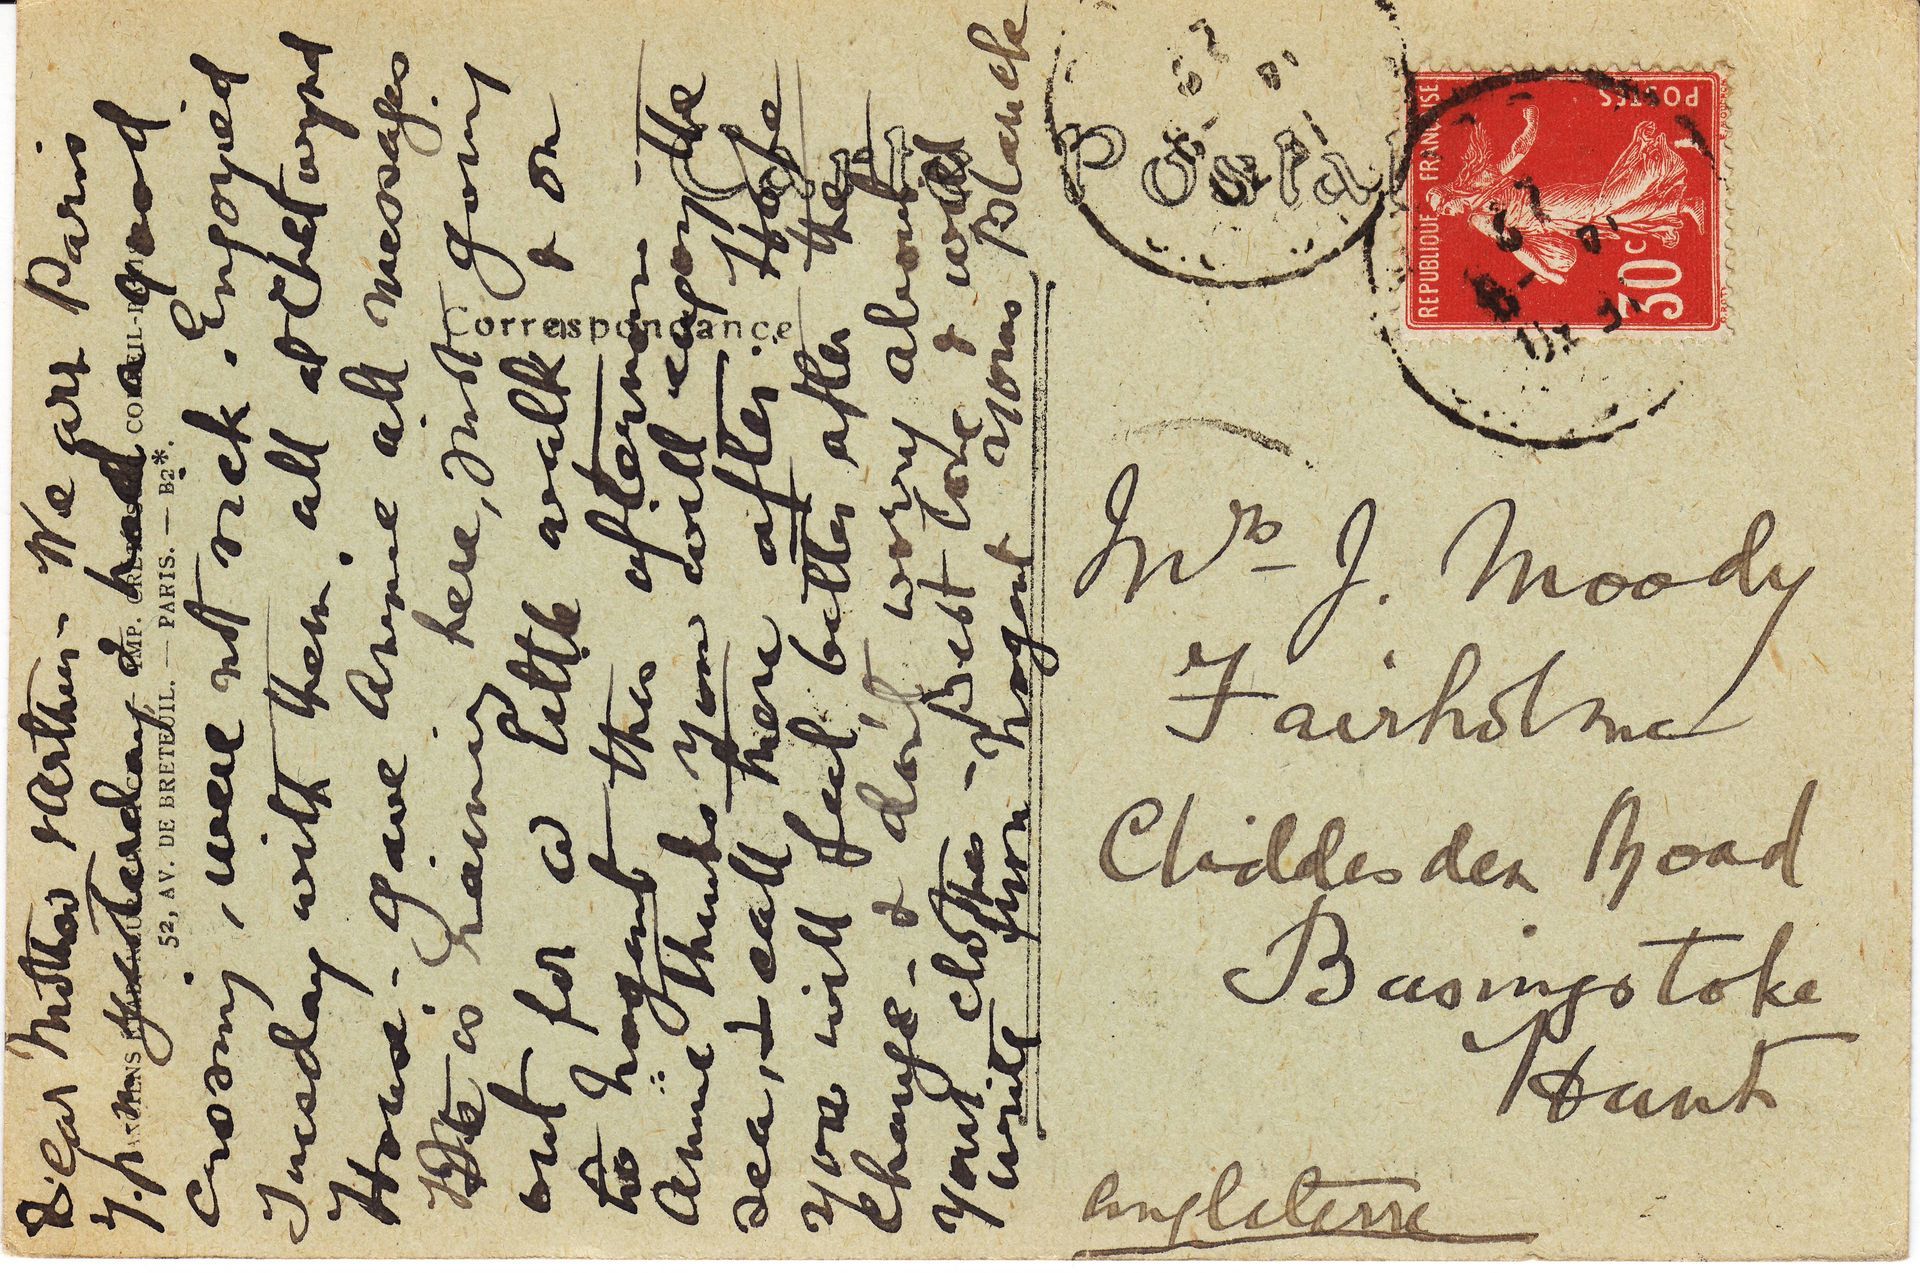 Dear Mother & Arthur - We arr Paris
7.pm yesterday & had good
crossing, were not sick. Enjoyed
Tuesday with them all at Chetwynd
House - gave Annie all messages
It is raining here, just going
out for a little walk & on
to Nogent this afternoon -
Annie thinks you will enjoy the
sea, & call there after. Hope
you will feel better after the
change - & don't worry about
your clothes - Best love & will
write from Nogent Yours Blanch
52, AV. DE BRETEUIL. — PARIS. — B2*.
Carte Postale
Correspondance
REPUBLIQUE FRANÇAISE
POSTES
30c
Mrs J. Moody
Fairholme
Cliddesden Road
Basingstoke
Hants
Angleterre